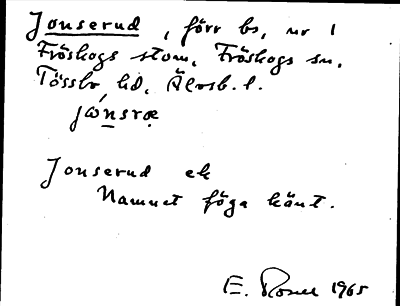 Jonserud, förr bs, nr 1
Fröskogs stom, Fröskogs sn,
Tössbo hd, Älvsb. l.
Jonserud ek
Namnet föga känt.
E. Rosell 1965